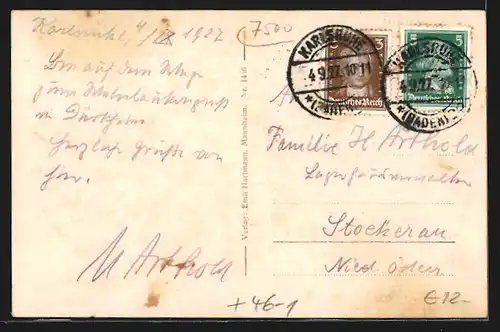 Karlsruhe, 4/IX 1927
7500
Bin auf dem Wege
zum Weinbaukongress
in Dürkheim.
Herzliche Grüsse von
hier.
H Arthold
Verlag: Emil Hartmann, Mannheim. Nr. 1416
KARLSRUHE
4.9.27. 10-11
*(BADEN)
3
Deutsches Reich
KARLSRUHE
4.9.27.
*(BADEN)
5 5
Deutsches Reich
An
Familie H. Arthold
Stockerau
Nied. Österr
+ 46-9
€12.-